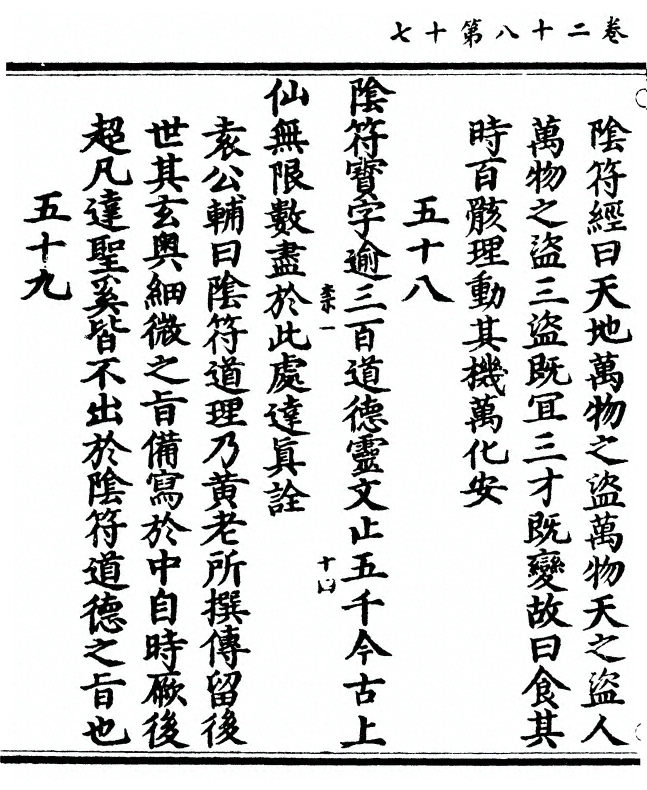 卷二十八第十七
陰符經曰天地萬物之盜萬物天之盜人
萬物之盜三盜既冝三才既變故曰食其
時百骸理動其機萬化安
五十八
陰符寶字逾三百道德靈文止五千今古上
柰一 十四
仙無限數盡於此處達眞詮
袁公輔曰陰符道理乃黃老所撰傳留後
世其玄奧細微之旨備寫於中自時厥後
超凡達聖奚皆不出於陰符道德之旨也
五十九